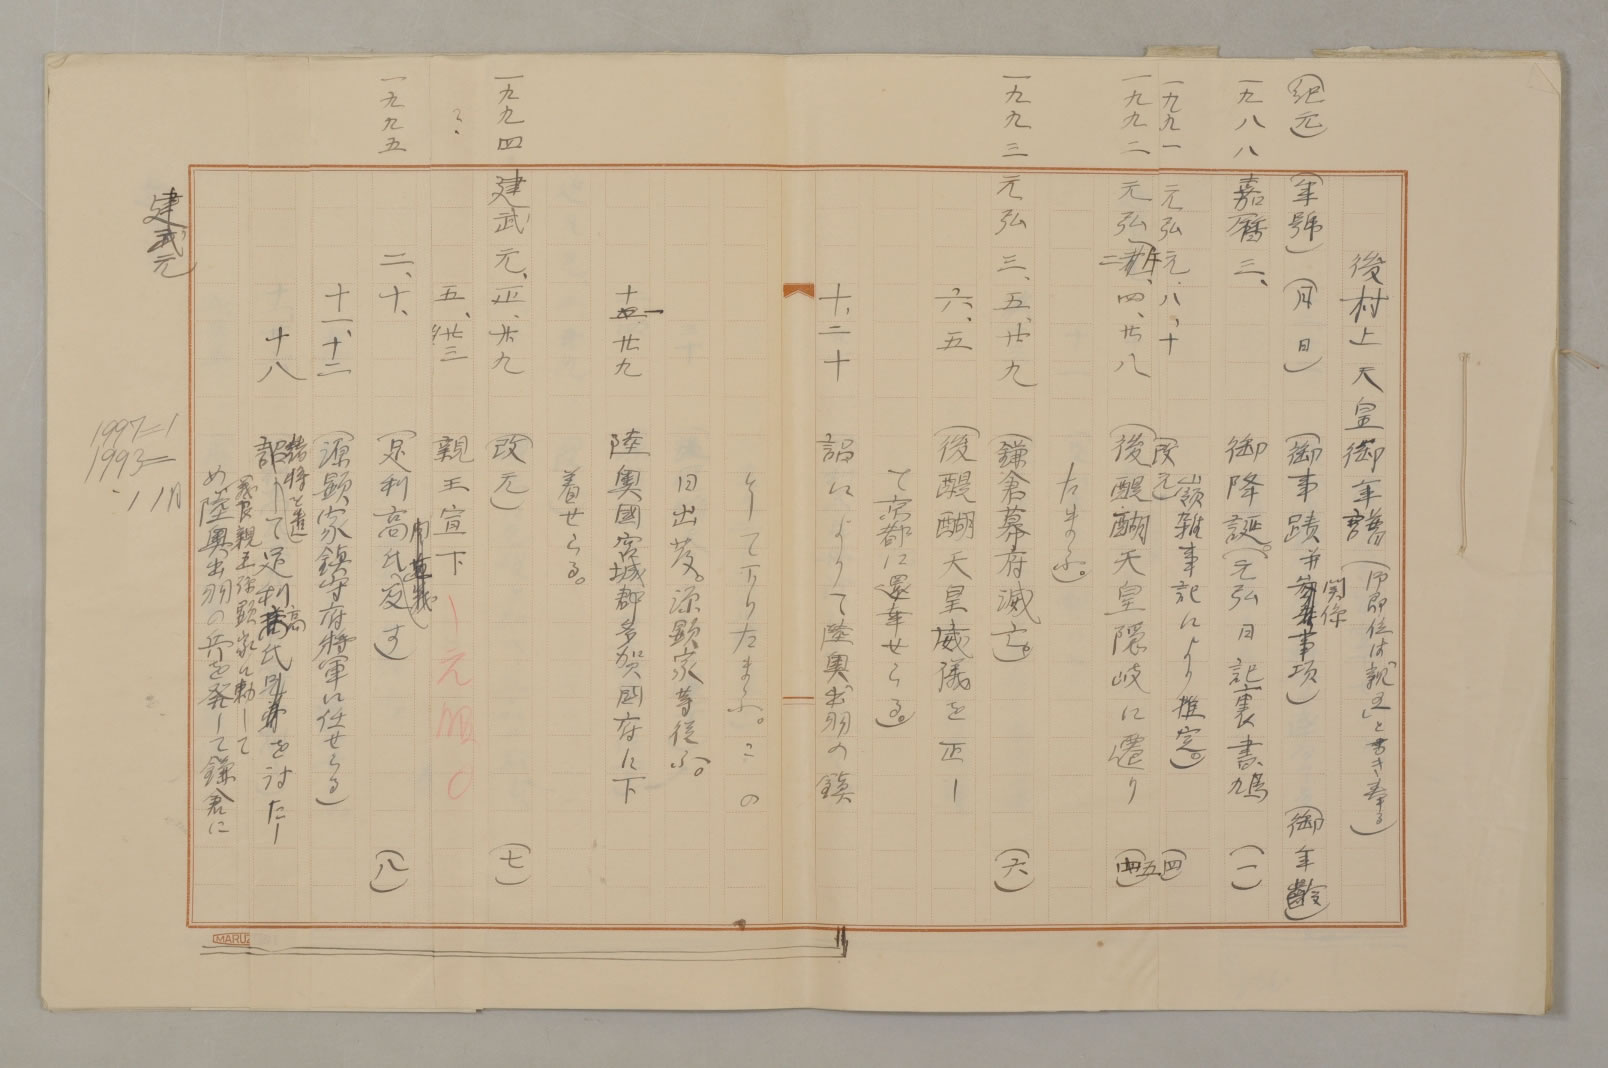 後村上天皇御年譜(御即位は「親王」と書き奉る)
(紀元)(年號)(月日)(御事蹟并関係事項)(御年齢)
一九八八 嘉曆三、 御降誕。(元弘日記裏書、(一)
嶺雜事記により推定。
一九九一 元弘元、八、十 改元 (四)
一九九二 元弘二、四、廿八 (後醍醐天皇隠岐に遷り (五)
たまふ)。
一九九三 元弘三、五、廿九 (鎌倉幕府滅亡) (六)
六、五 (後醍醐天皇威儀を正し
て京都に還幸せらる。)
十、二十 詔によりて陸奥出羽の鎮
として下りたまふ。この
日出發。源顕家等從ふ。
十一、廿九 陸奥國宮城郡多賀国府に下
着せらる。
一九九四 建武元、正、廿九 (改元) (七)
? 五、廿三 親王宣下
元服
一九九五 二、十、 (足利高氏反す) (八)
十一、十二 (源顕家鎮守府将軍に任せらる)
十八 詔して足利高氏を討たし
諸将を遣
義良親王源顕家に勅して
め陸奥出羽の兵を発して鎌倉に
建武元
1997=1
1993=
MARUZ